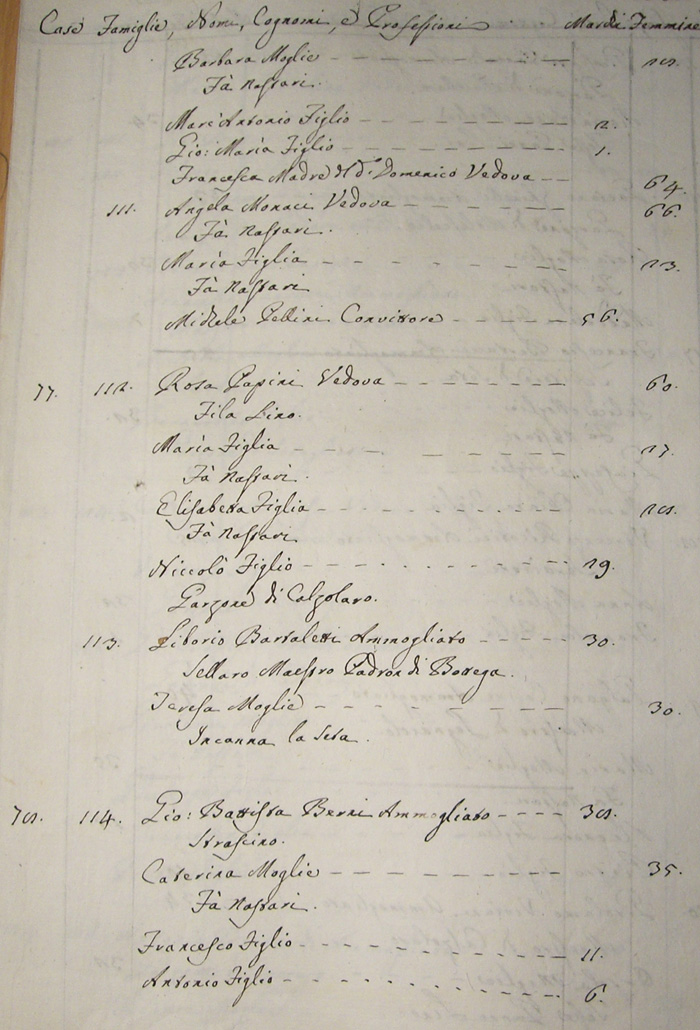 Case Famiglie, Nomi, Cognomi, e Professioni . . Maschi Femmine
Barbara Moglie - - - - - - - - 28.
Fà Nastari.
Marc'Antonio Figlio - - - - - - - 2.
Gio: Maria Figlio - - - - - - - 1.
Francesca Madre di d.º Domenico Vedova - - 64.
111. Angela Monaci Vedova - - - - - - 66.
Fà Nastari.
Maria Figlia - - - - - - - - - 23.
Fà Nastari
Michele Pellini Convittore - - - - - 56.
77. 112. Rosa Papini Vedova - - - - - - - 60.
Fila Lino.
Maria Figlia - - - - - - - - 27.
Fà Nastari.
Elisabetta Figlia - - - - - - - - 28.
Fà Nastari
Niccolò Figlio - - - - - - - - - 29.
Garzone di Calzolaro.
113. Liborio Bartaletti Ammogliato - - - - - 30.
Sellaro Maestro Padron di Bottega.
Teresa Moglie - - - - - - - - 30.
Incanna la Seta.
78. 114. Gio: Battista Berni Ammogliato - - - - 38.
Strascino.
Caterina Moglie - - - - - - - - 35.
Fà Nastari.
Francesco Figlio - - - - - - - - 11.
Antonio Figlio - - - - - - - - - 6.